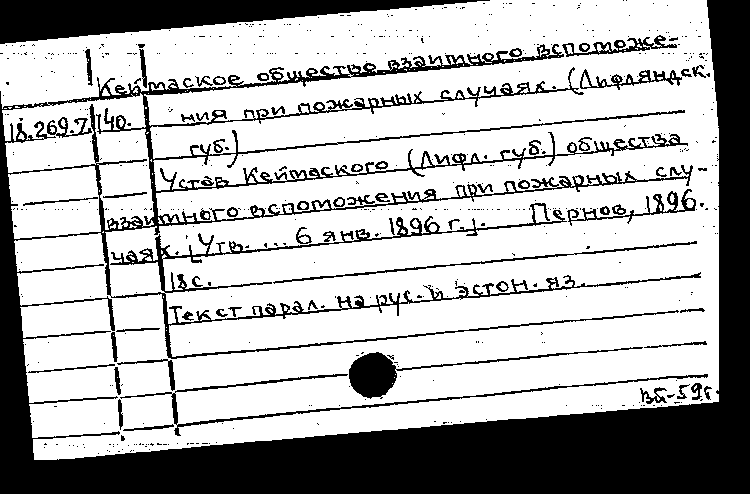 Кеймаское общество взаимного вспоможе-
18.269.7.140. ния при пожарных случаях. (Лифляндск.
губ.)
Устав Кеймаского (Лифл. губ.) общества
взаимного вспоможения при пожарных слу-
чаях. [Утв. ... 6 янв. 1896 г.]. Пернов, 1896.
18 с.
Текст парал. на рус. и эстон. яз.
ВБ-59г.